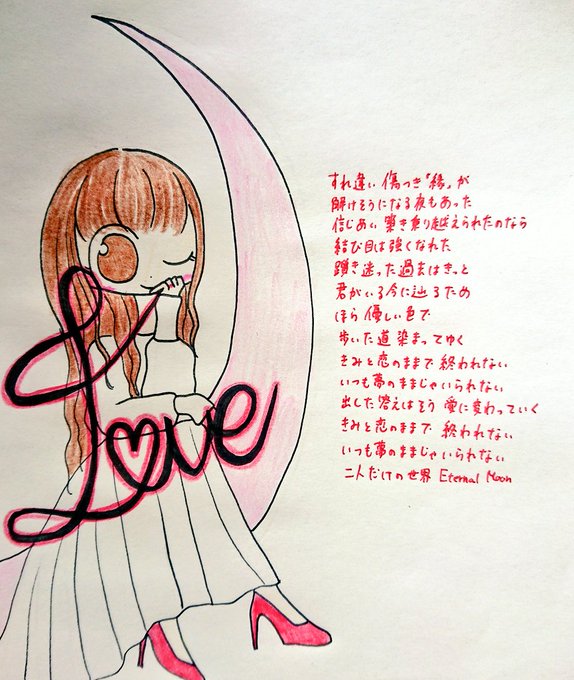 Love
すれ違い 傷つき「絆」が
解けそうになる夜もあった
信じあい 築き乗り越えられたのなら
結び目は強くなれた
躓き迷った過ちはきっと
君がいる今に辿るため
ほら 優しい色で
歩いた道 染まってゆく
きみと恋のままで 終われない
いつも夢のままじゃいられない
出した答えはそう 愛に変わっていく
きみと恋のままで 終われない
いつも夢のままじゃいられない
二人だけの世界 Eternal Moon